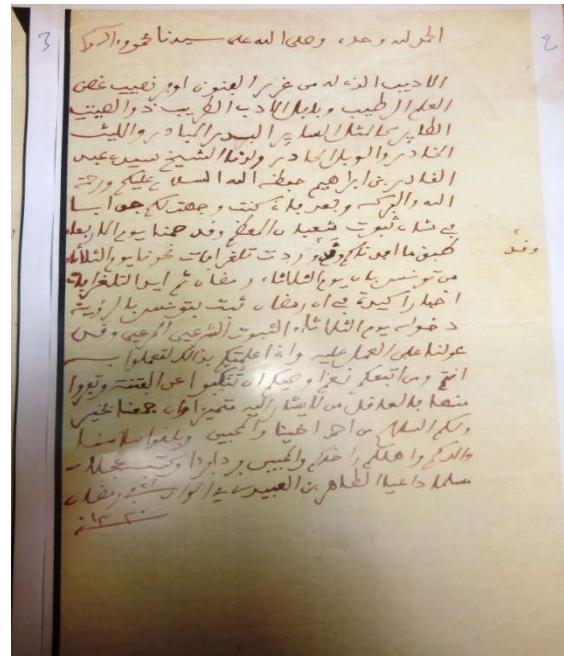 3
2
الحمد لله وحده وصلى الله على سيدنا محمد وآله
الاديب الذي له من غزير الفنون اوفر نصيب غصن
العلم الرطيب وبلبل الأدب الطريب ذو الصيت
الطاير كالمثل الساير البدر المبادر والليث
الخادر والوبل الحادر ولدنا الشيخ سيدي عبد
القادر بن ابراهيم حفظه الله السلام عليكم ورحمة
الله والبركة وبعد فانه كنت وجهت لكم جوابا
في شان ثبوت شعبان المعظم وقد صمنا يوم الاربعاء
وقد
طبق ما وردت تلغرافات نحونا يوم الثلاثاء
من تونس بان يوم الثلاثاء رمضان ثم ايد التلغرافات
اخبارا كثيرة في ان رمضان ثبت بتونس بالرؤية
دخوله يوم الثلاثاء الثبوت الشرعي المرعي وقد
عولنا على العمل عليه واذا اعلمتكم بذالك لتعملوا به
انتم ومن اتبعكم نعم اوصيكم ان تنكبوا عن الفتنة وتفروا
منها فالعاقل من لا يشار اليه متميزا وان جمعنا بخير
ولكم السلام من احبائنا والمحبين وبلغوا سلامنا
والدكم واهلكم واخدكم والمحبين فردا فردا وكتب بعجلة
مسلما داعيا الطاهر بن العبيدي في رمضان